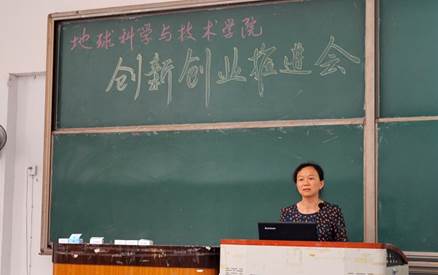 地球科学与技术学院
创新创业推进会